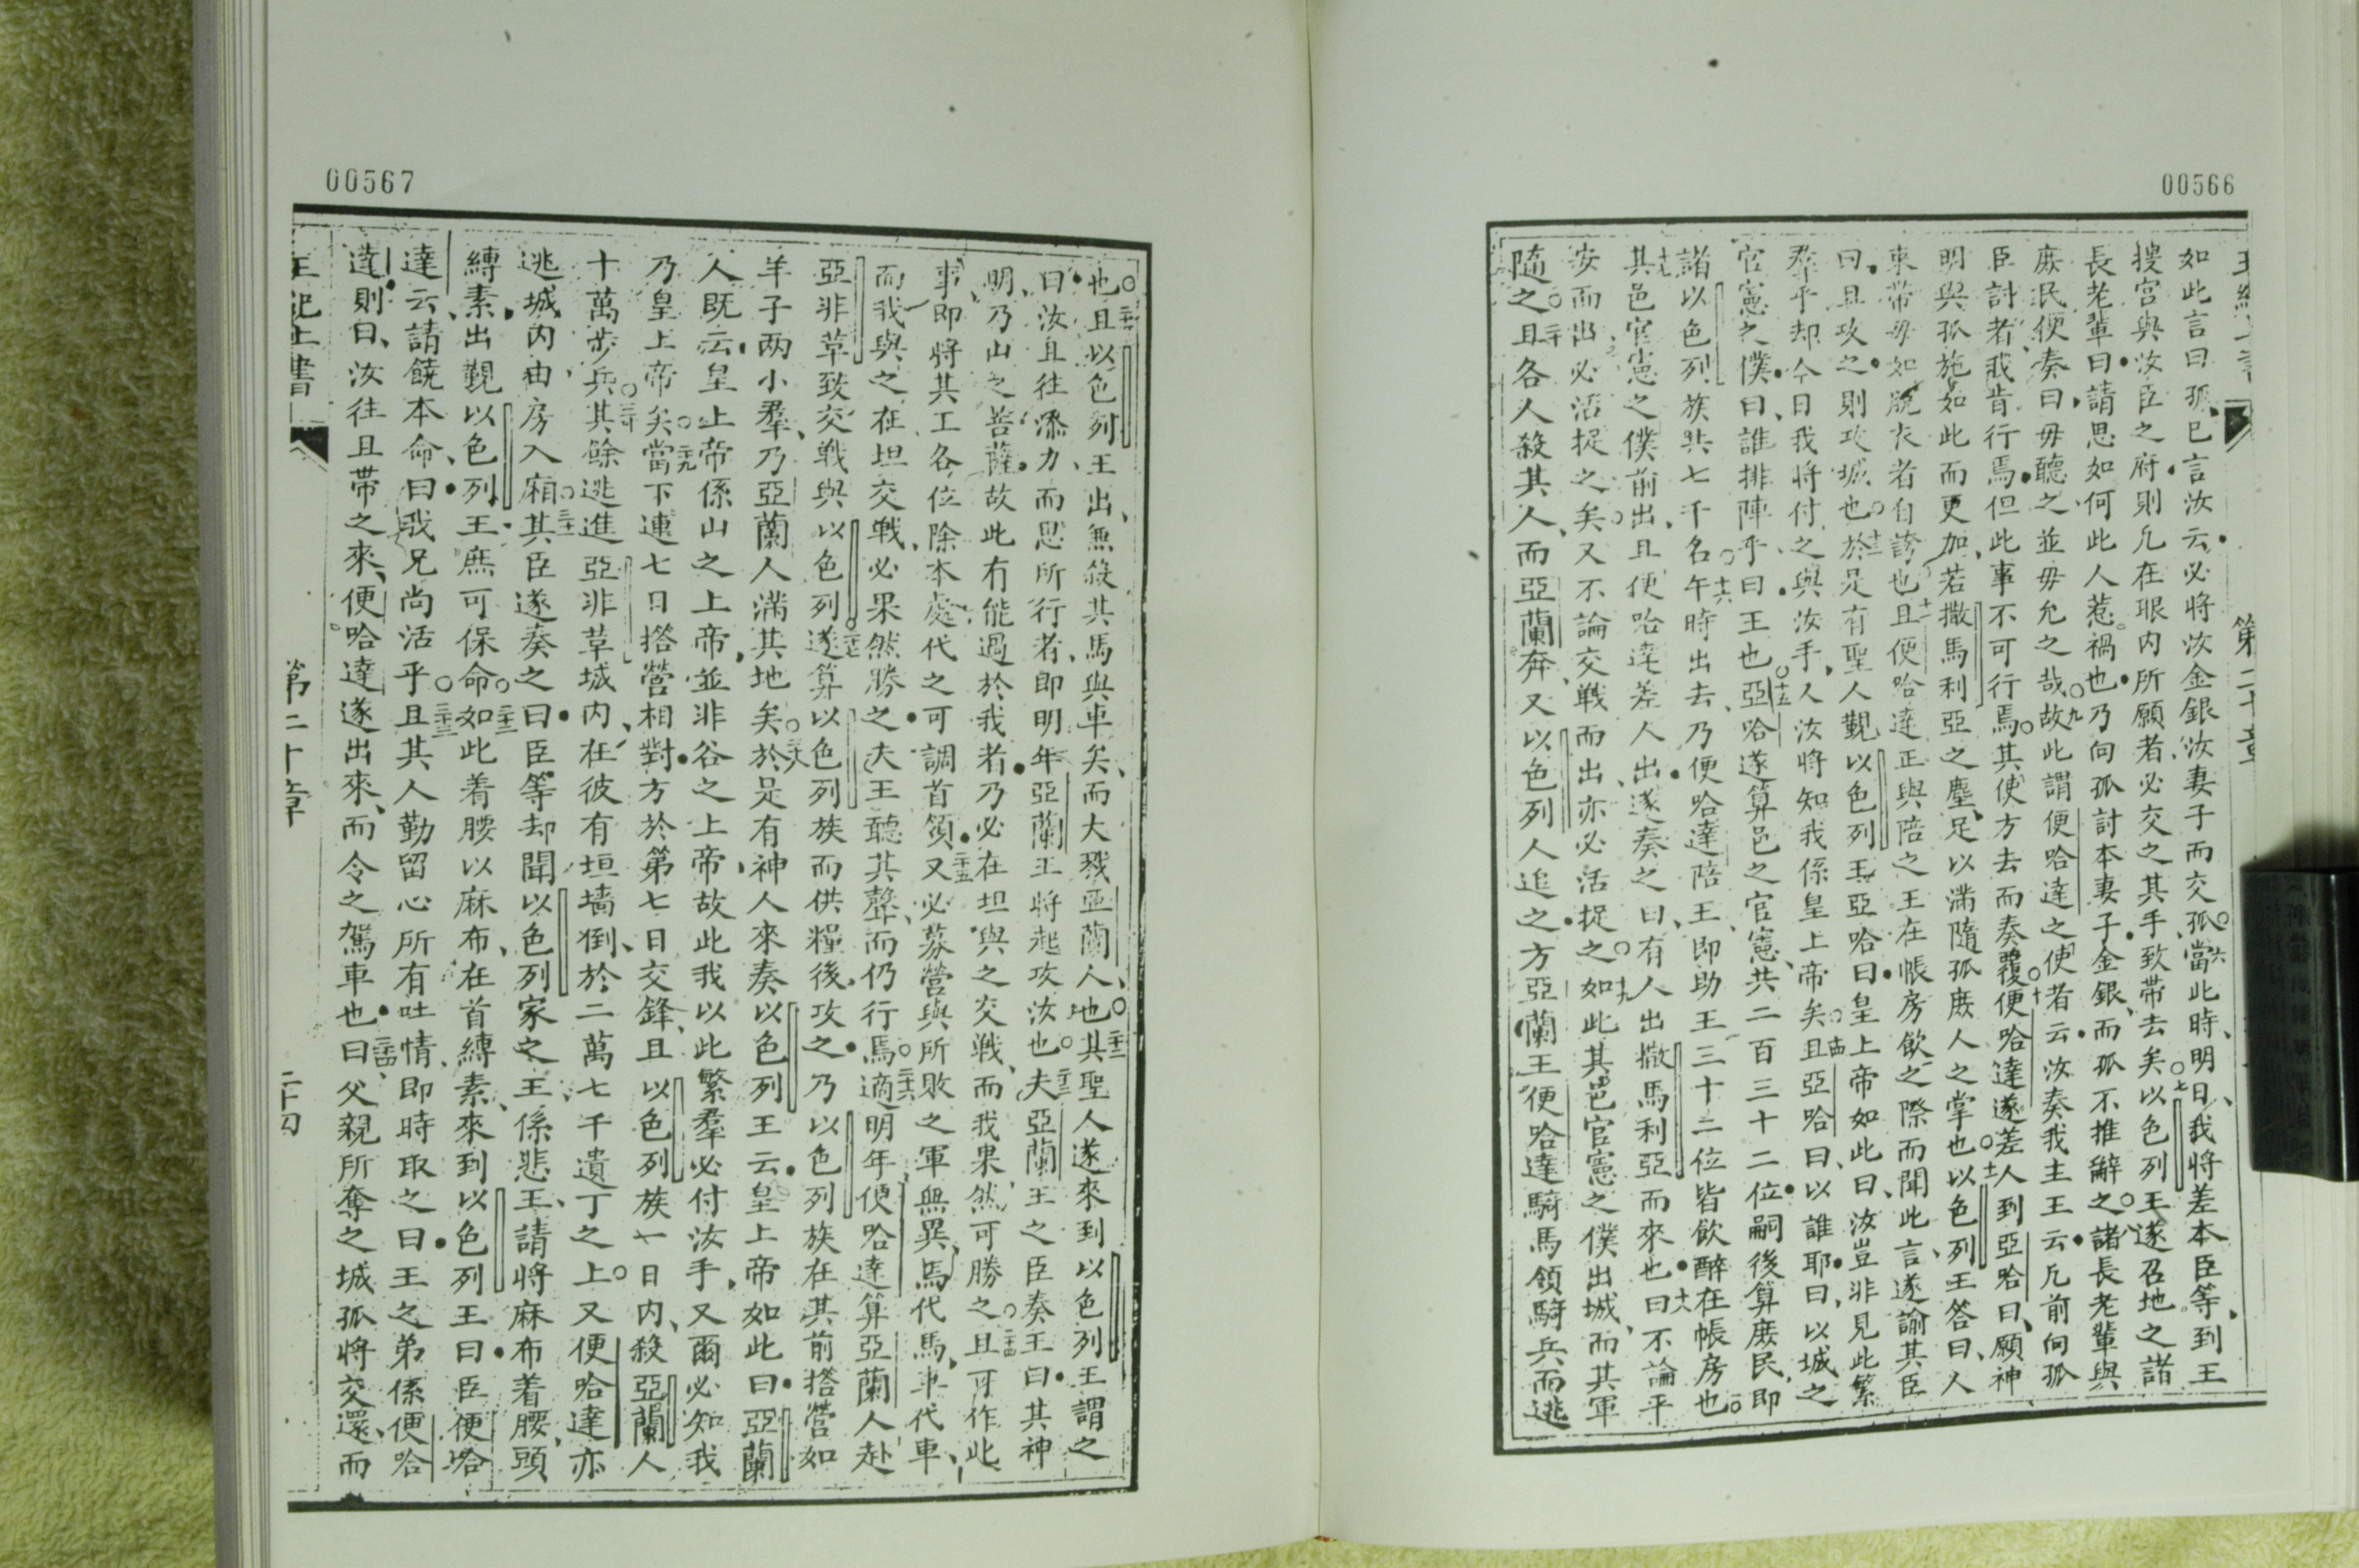 00566
第二十章
如此言曰孤巳言汝云必將汝金銀汝妻子而交孤○六當此時明日我將差本臣等到王
搜宮與汝臣之府則凢在眼內所願者必交之其手致帶去矣○七以色列王遂召地之諸
長老輩曰請思如何此人惹禍也乃向孤討本妻子金銀而孤不推辭之○八諸長老輩與
庶民便奏曰毋聽之並毋允之哉○九故此謂便哈達之使者云汝奏我主王云凢前向孤
臣討者我肯行焉但此事不可行焉○其使方去而奏覆○十便哈達遂差人到亞哈曰願神
明與孤施如此而更加若撒馬利亞之塵足以滿隨孤庶人之掌也○十一以色列王答曰人
束帶毋如脫衣者自誇也○十二且便哈達正與陪之王在帳房飲之際而聞此言遂諭其臣
曰且攻之則攻城也○十三於是有聖人覲以色列王亞哈曰皇上帝如此曰汝豈非見此繁
羣乎却今日我將付之與汝手又汝將知我係皇上帝矣○十四且亞哈曰以誰耶曰以城之
官憲之僕曰誰排陣乎曰王也○十五亞哈遂算邑之官憲共二百三十二位嗣後算庶民即
諸以色列族共七千名○十六午時出去乃便哈達陪王即助王三十二位皆飲醉在帳房也○
十七其邑官憲之僕前出且便哈達差人出遂奏之曰有人出撒馬利亞而來也○十八曰不論平
安而出必活捉之矣又不論交戰而出亦必活捉之○十九如此其邑官憲之僕出城而其軍
隨之○二十且各人殺其人而亞蘭奔又以色列人追之方亞蘭王便哈達騎馬領騎兵而逃
00567
也○二十一且以色列王出無殺其馬與車矣而大戮亞蘭人○二十二地其聖人遂來到以色列王謂之
曰汝且往添力而思所行者即明年亞蘭王將起攻汝也○二十三夫亞蘭王之臣奏王曰其神
明乃山之菩薩故此有能過於我者乃必在坦與之交戰而我果然可勝之○二十四且可作此
事即將其工各位除本處代之可調首領○二十五又必募營與所敗之軍無異馬代馬車代車
而我與之在坦交戰必果然勝之夫王聽其聲而仍行焉○二十六適明年便哈達算亞蘭人赴
亞非草致交戰與以色列○二十七遂算以色列族而供糧後攻之乃以色列族在其前搭營如
羊子两小羣乃亞蘭人滿其地矣○二十八於是有神人來奏以色列王云皇上帝如此曰亞蘭
人既云皇上帝係山之上帝並非谷之上帝故此我以此繁羣必付汝手又爾必知我
乃皇上帝矣○二十九當下連七日搭營相對方於第七日交鋒且以色列族一日內殺亞蘭人
十萬步兵○三十其餘逃進亞非草城內在彼有垣墻倒於二萬七千遺丁之上○又便哈達亦
逃城內由房入廂○三十一其臣遂奏之曰臣等却聞以色列家之王係悲王請將麻布着腰頭
縛素出覲以色列王庶可保命○三十二如此着腰以麻布在首縛素來到以色列王曰臣便哈
達云請饒本命曰我兄尚活乎○三十三且其人勤留心所有吐情即時取之曰王之弟係便哈
達則曰汝往且帶之來便哈達遂出來而令之駕車也○三十四曰父親所奪之城孤將交還而
王紀上書
第二十章
二十四